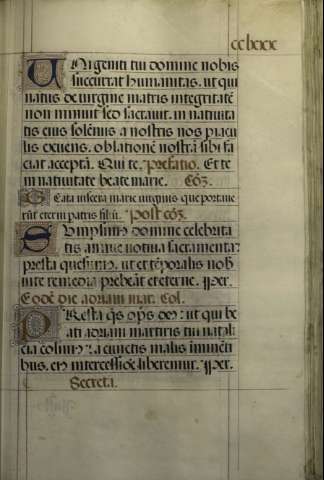 cclxxx
Unigeniti tui domine nobis
succurrat humanitas. ut qui
natus de virgine matris integritatē
non minuit sed sacrauit. in natiuita
tis eius solēniis a nostris nos piacu
lis exuens. oblationē nostrā sibi fa
ciat acceptā. Qui te. Prefatio. Et te
in natiuitate beate marie. Cōz.
Beata uiscera marie uirginis que portaue
rūt eterni patris filiū. Post cōz.
Sumpsimus domine celebrita
tis annue uotiua sacramenta:
presta quesumus. ut et tēporalis nob
uite remedia prebeāt et eterne. Per.
Eodē die adriani mar. Col.
Presta q̄s op̄s deus: ut qui be
ati adriani martiris tui natali
cia colimus. a cunctis malis imminēti
bus. eius intercessiōe liberemur. Per.
Secreta.